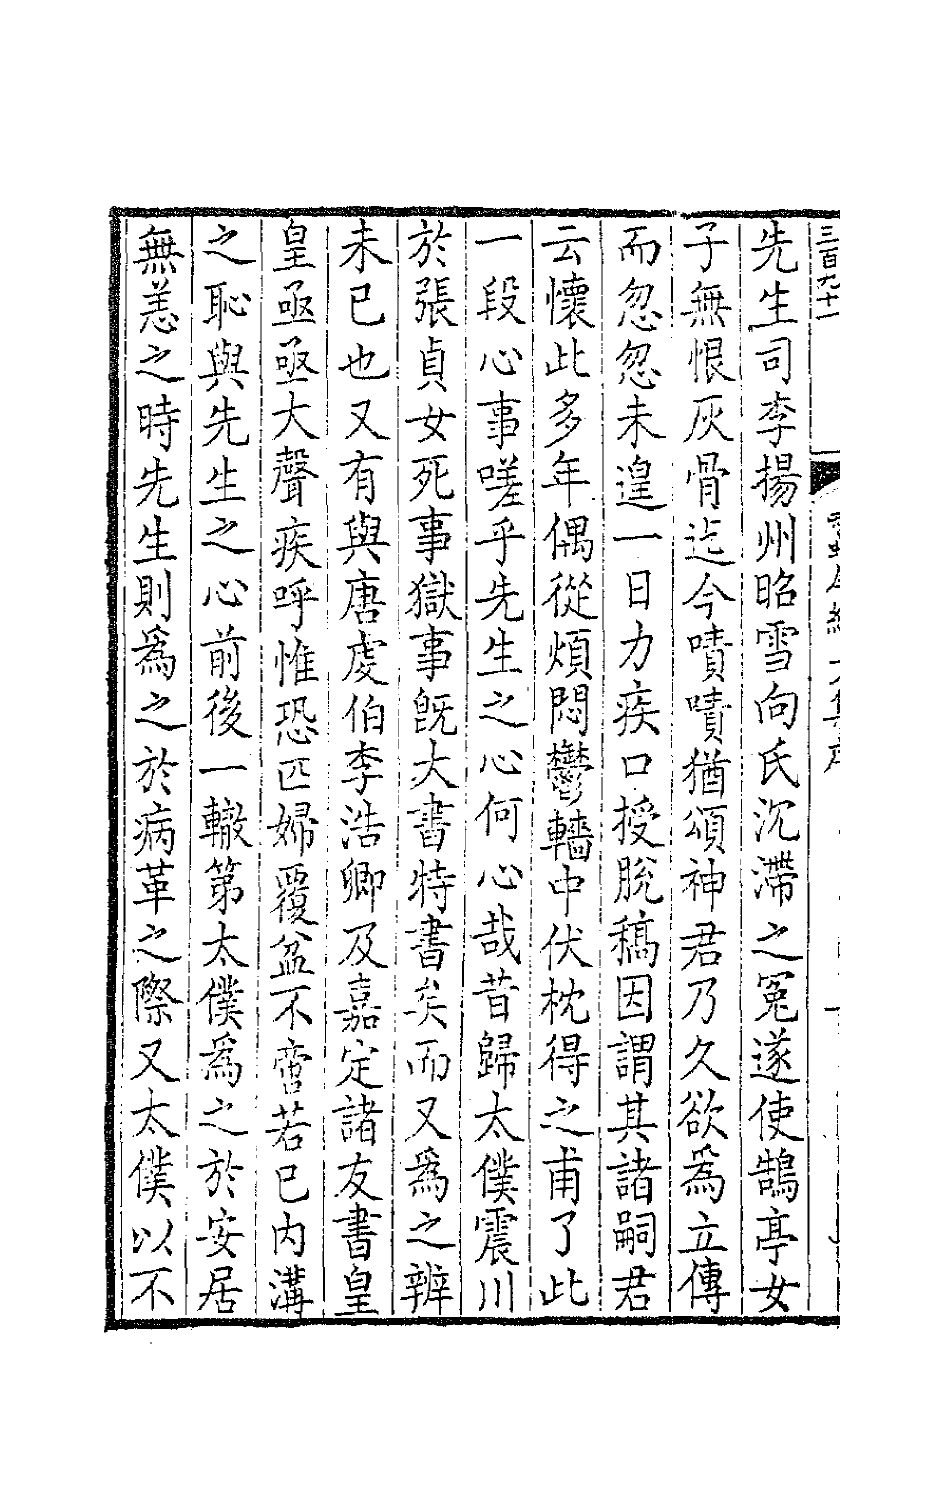 三百九十一
先生司李揚州昭雪向氏沉滯之冤遂使鵠亭女
子無恨灰骨迄今嘖嘖猶頌神君乃久欲為立傳
而忽忽未遑一日力疾口授脫稿因謂其諸嗣君
云懷此多年偶從煩悶鬱轖中伏枕得之甫了此
一段心事嗟乎先生之心何心哉昔歸太僕震川
於張貞女死事獄事旣大書特書矣而又爲之辨
未已也又有與唐虔伯李浩卿及嘉定諸友書皇
皇亟亟大聲疾呼惟恐匹婦覆盆不啻若已內溝
之恥與先生之心前後一轍第太僕爲之於安居
無恙之時先生則爲之於病革之際又太僕以不